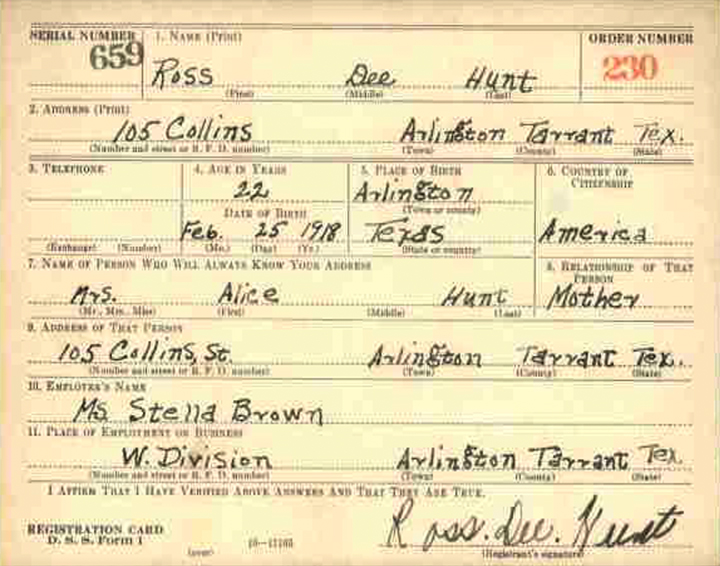 SERIAL NUMBER 1. NAME (Print) ORDER NUMBER
659 230
Ross Dee Hunt
(First) (Middle) (Last)
2. ADDRESS (Print)
105 Collins Arlington Tarrant Tex.
(Number and street or R. F. D. number) (Town) (County) (State)
3. TELEPHONE 4. AGE IN YEARS 5. PLACE OF BIRTH 6. COUNTRY OF
CITIZENSHIP
22 Arlington
(Town or county)
DATE OF BIRTH
Feb. 25 1918 Texas America
(Exchange) (Number) (Mo.) (Day) (Yr.) (State or country)
7. NAME OF PERSON WHO WILL ALWAYS KNOW YOUR ADDRESS 8. RELATIONSHIP OF THAT
PERSON
Mrs. Alice Hunt Mother
(Mr., Mrs., Miss) (First) (Middle) (Last)
9. ADDRESS OF THAT PERSON
105 Collins, St. Arlington Tarrant Tex.
(Number and street or R. F. D. number) (Town) (County) (State)
10. EMPLOYER'S NAME
Ms Stella Brown
11. PLACE OF EMPLOYMENT OR BUSINESS
W. Division Arlington Tarrant Tex
(Number and street or R. F. D. number) (Town) (County) (State)
I AFFIRM THAT I HAVE VERIFIED ABOVE ANSWERS AND THAT THEY ARE TRUE.
REGISTRATION CARD
D. S. S. Form 1 Ross. Dee. Hunt
(over) (Registrant's signature)